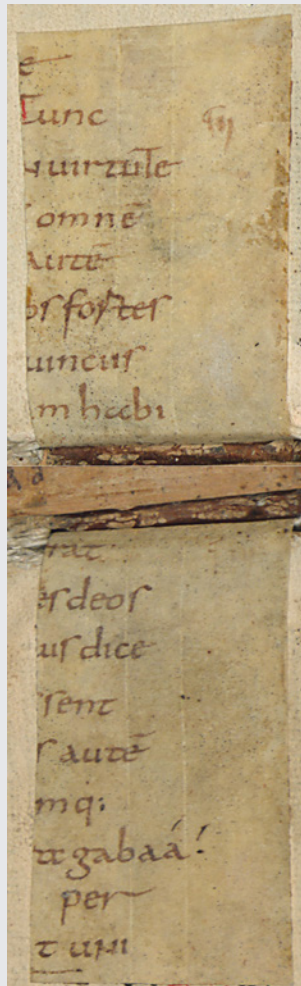 e
Tunc
uirtute
omnē
autē
os fortes
uincus
m habi
rat
es deos
us dice
ssent
s autē
mq:
at gabaá!
per
t uni